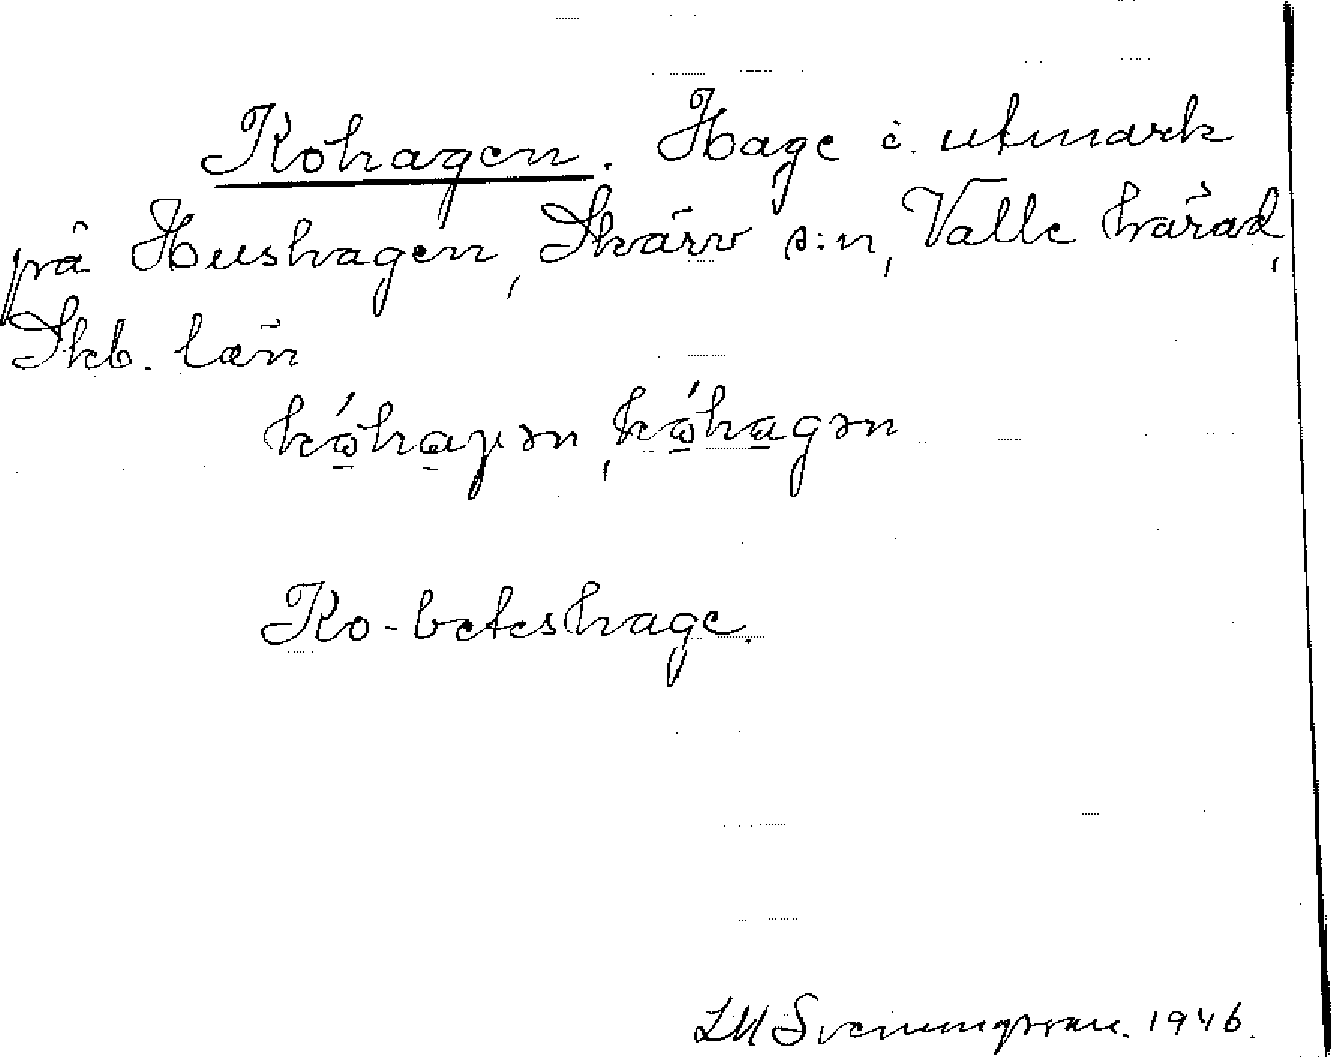 Kohagen. Hage i utmark
på Hushagen, Skärv s:n, Valle härad,
Skb. län
kó̱ha̱γən, kó̱ha̱gən
Ko-beteshage.
LM Svenungsson. 1946.